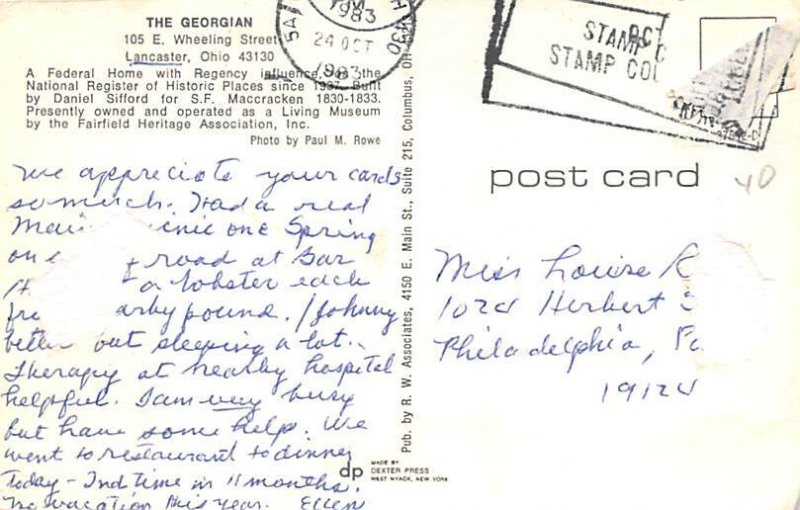 THE GEORGIAN
105 E. Wheeling Street
Lancaster, Ohio 43130
A Federal Home with Regency influence, the
National Register of Historic Places since Built
by Daniel Sifford for S.F. Maccracken 1830-1833.
Presently owned and operated as a Living Museum
by the Fairfield Heritage Association, Inc.
Photo by Paul M. Rowe
We appreciate your cards
so much. Had a real
one Spring
on road at Bar
a lobster each
pound. Johnny
better but sleeping a lot.
Therapy at nearby hospital
helpful. I am very busy
but have some help. We
went to restaurant to dinner
today - 2nd time in 11 months.
No vacation this year. Ellen
1983
24 OCT
1983
Pub. by R. W. Associates, 4150 E. Main St., Suite 215, Columbus, OH
dp
MADE BY
DEXTER PRESS
WEST NYACK, NEW YORK
STAMP
STAMP
post card
40
Miss Louise
1024 Herbert
Philadelphia, Pa
19124